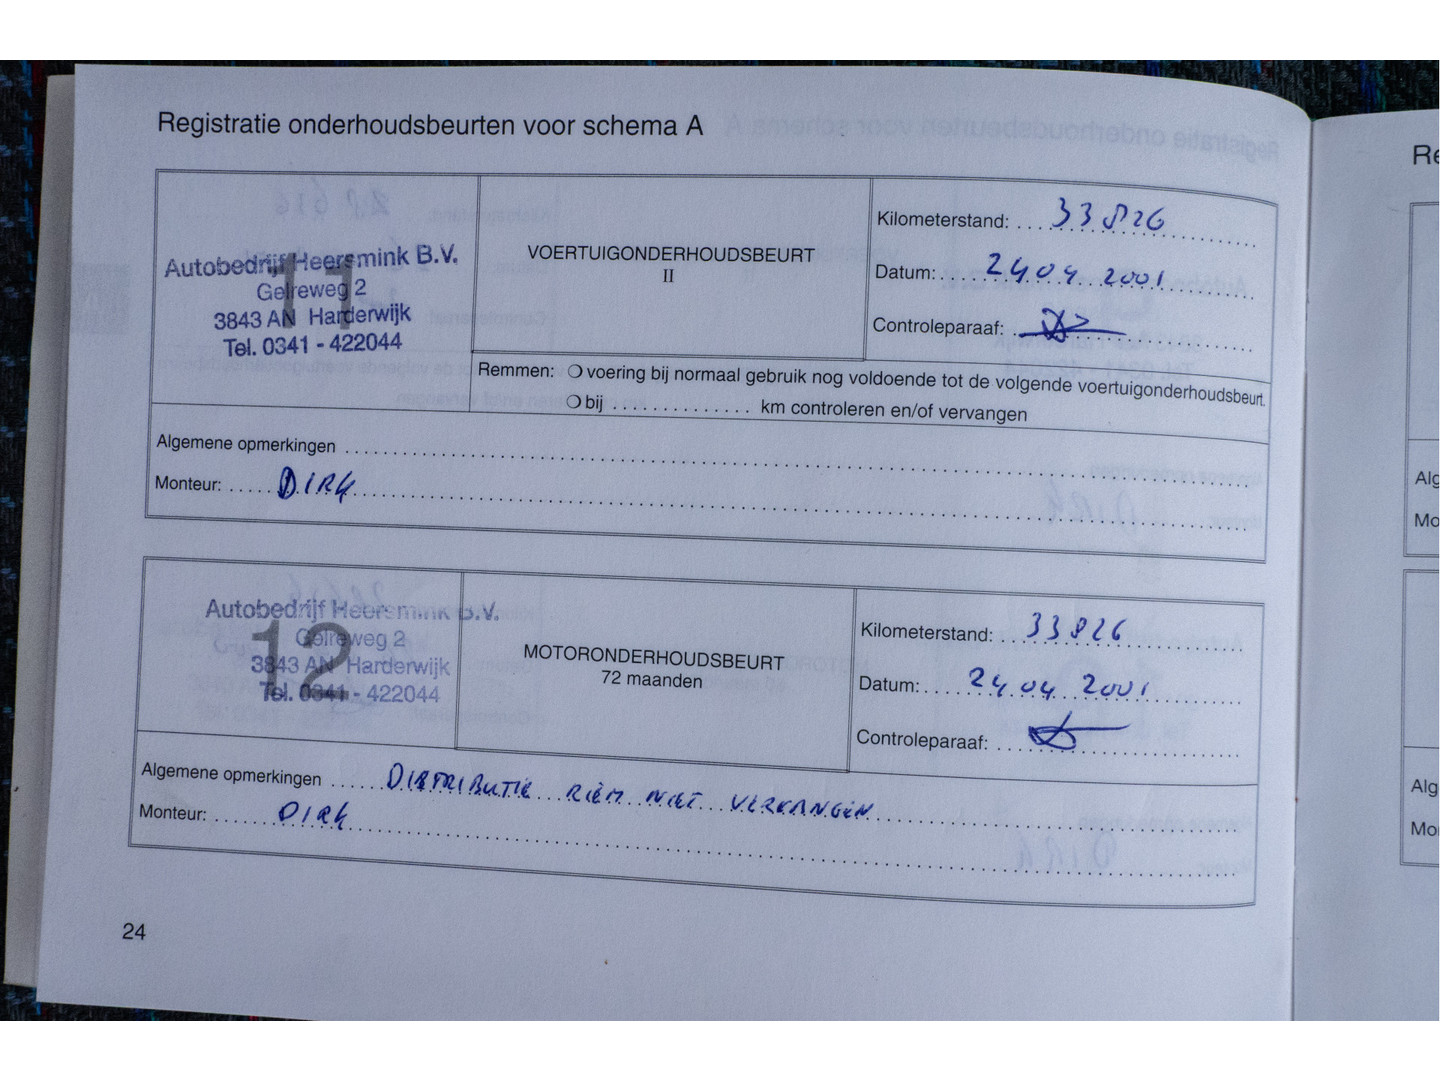 Registratie onderhoudsbeurten voor schema A
11
Autobedrijf Heersmink B.V.
Gelreweg 2
3843 AN Harderwijk
Tel. 0341 - 422044
VOERTUIGONDERHOUDSBEURT
II
Kilometerstand: 33826
Datum: 24 04 2001
Controleparaaf:
Remmen: voering bij normaal gebruik nog voldoende tot de volgende voertuigonderhoudsbeurt.
bij .............. km controleren en/of vervangen
Algemene opmerkingen
Monteur: DIRK
12
Autobedrijf Heersmink B.V.
Gelreweg 2
3843 AN Harderwijk
Tel. 0341 - 422044
MOTORONDERHOUDSBEURT
72 maanden
Kilometerstand: 33826
Datum: 24 04 2001
Controleparaaf:
Algemene opmerkingen DISTRIBUTIE RIEM NIET VERVANGEN
Monteur: DIRK
24
Re
Alg
Mo
Alg
Mo